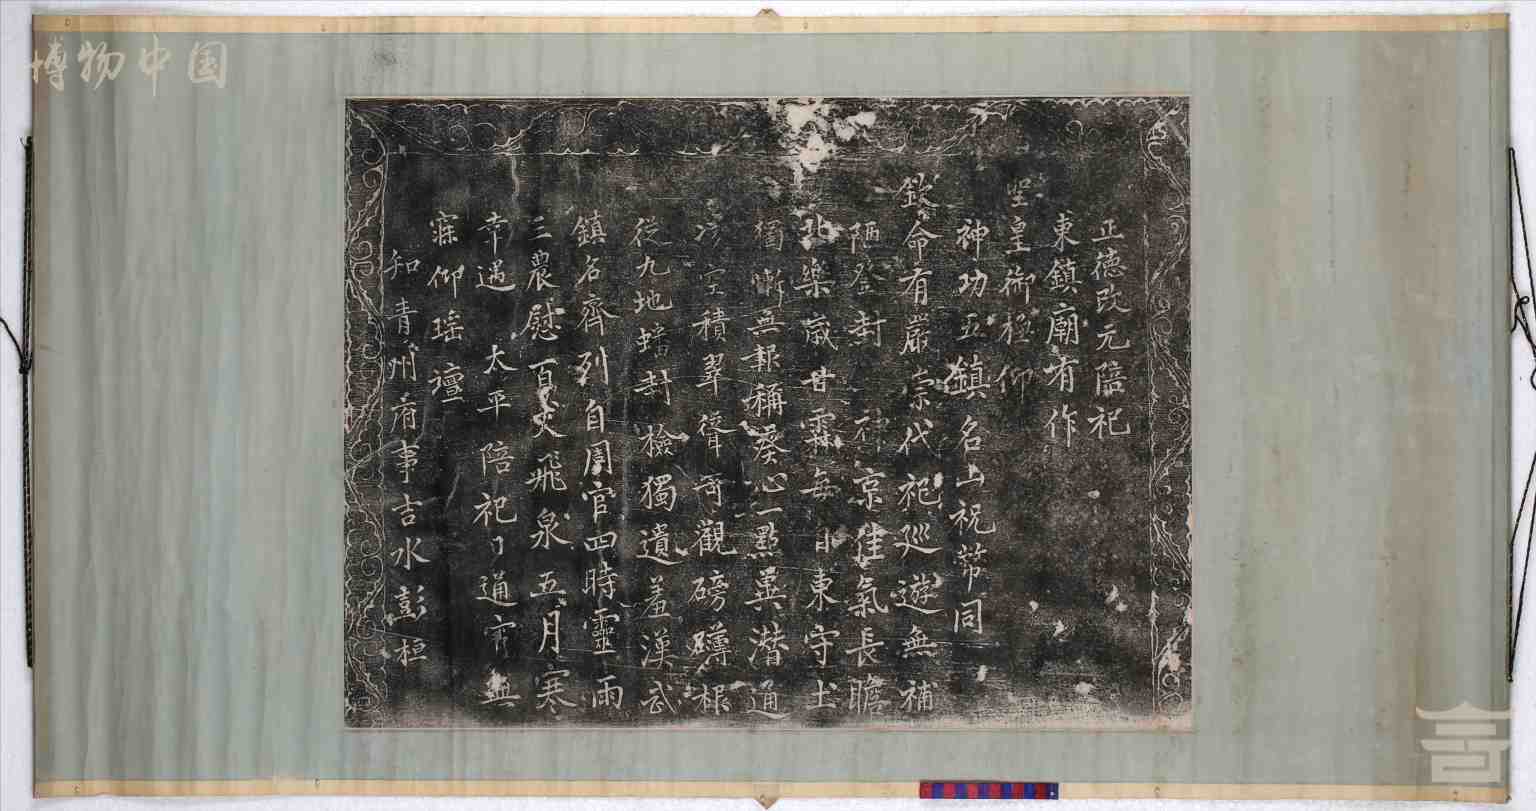 正德改元陪祀
東鎮廟有作
聖皇御極仰
神功五鎮名山祝幣同
欽命有嚴崇代祀巡遊無補
陋登封神京佳氣長瞻
北樂歲甘霖每自東守土
獨慚無報稱葵心一點冀潜通
空積翠聳奇觀磅礴根
從九地蟠封檢獨遺羞漢武
鎮名齊列自周官四時靈雨
三農慰百丈飛泉五月寒
幸遇太平陪祀日通宵無
寐仰瑤壇
知青州府事吉水彭桓
博物中国